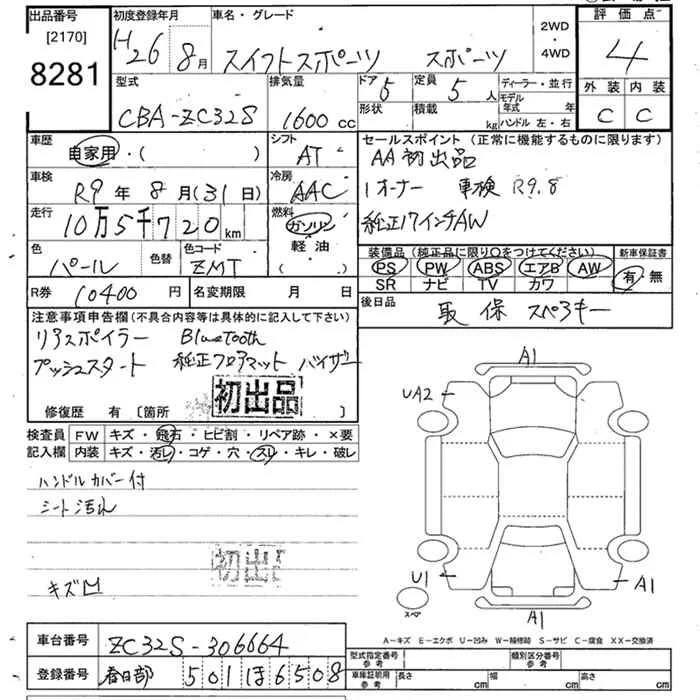 出品番号
[2170]
8281
初度登録年月
H26 8月
車名・グレード
スイフトスポーツ スポーツ
2WD
・
4WD
評価点
4
外装 内装
C C
型式
CBA-ZC32S
排気量
1600 cc
ドア 5
形状
定員 5人
積載 kg
ディーラー・並行
モデル年式 年
ハンドル 左・右
車歴
自家用・( )
シフト
AT
セールスポイント (正常に機能するものに限ります)
AA初出品
1オーナー 車検 R9.8
純正17インチAW
車検
R9年8月(31日)
冷房
AAC
走行
10万5千720km
燃料
ガソリン
軽油・
( )
色
パール
色替
色コード
ZMT
装備品 (純正品に限り○をつけてください)
PS PW ABS エアB AW
SR ナビ TV カワ
新車保証書
有・無
R券 10400円
名変期限 月 日
後日品
取 保 スペアキー
注意事項申告欄(不具合内容等は具体的に記入して下さい)
リアスポイラー Bluetooth
プッシュスタート 純正フロアマット バイザー
初出品
修復歴 有 [箇所 ]
検査員 FW キズ・飛石・ヒビ割・リペア跡・×要
記入欄 内装 キズ・汚れ・コゲ・穴・スレ・キレ・破レ
ハンドルカバー付
シート汚れ
初出品
キズ凹
A1
UA2
U1
A1
A1
スペア
A-キズ E-エクボ U-凹み W-補修跡 S-サビ C-腐食 XX-交換済
車台番号 ZC32S-306664
登録番号 春日部 501ほ6508
型式指定番号 参考
類別区分番号 参考
車庫証明用 参考
長さ cm 幅 cm 高さ cm